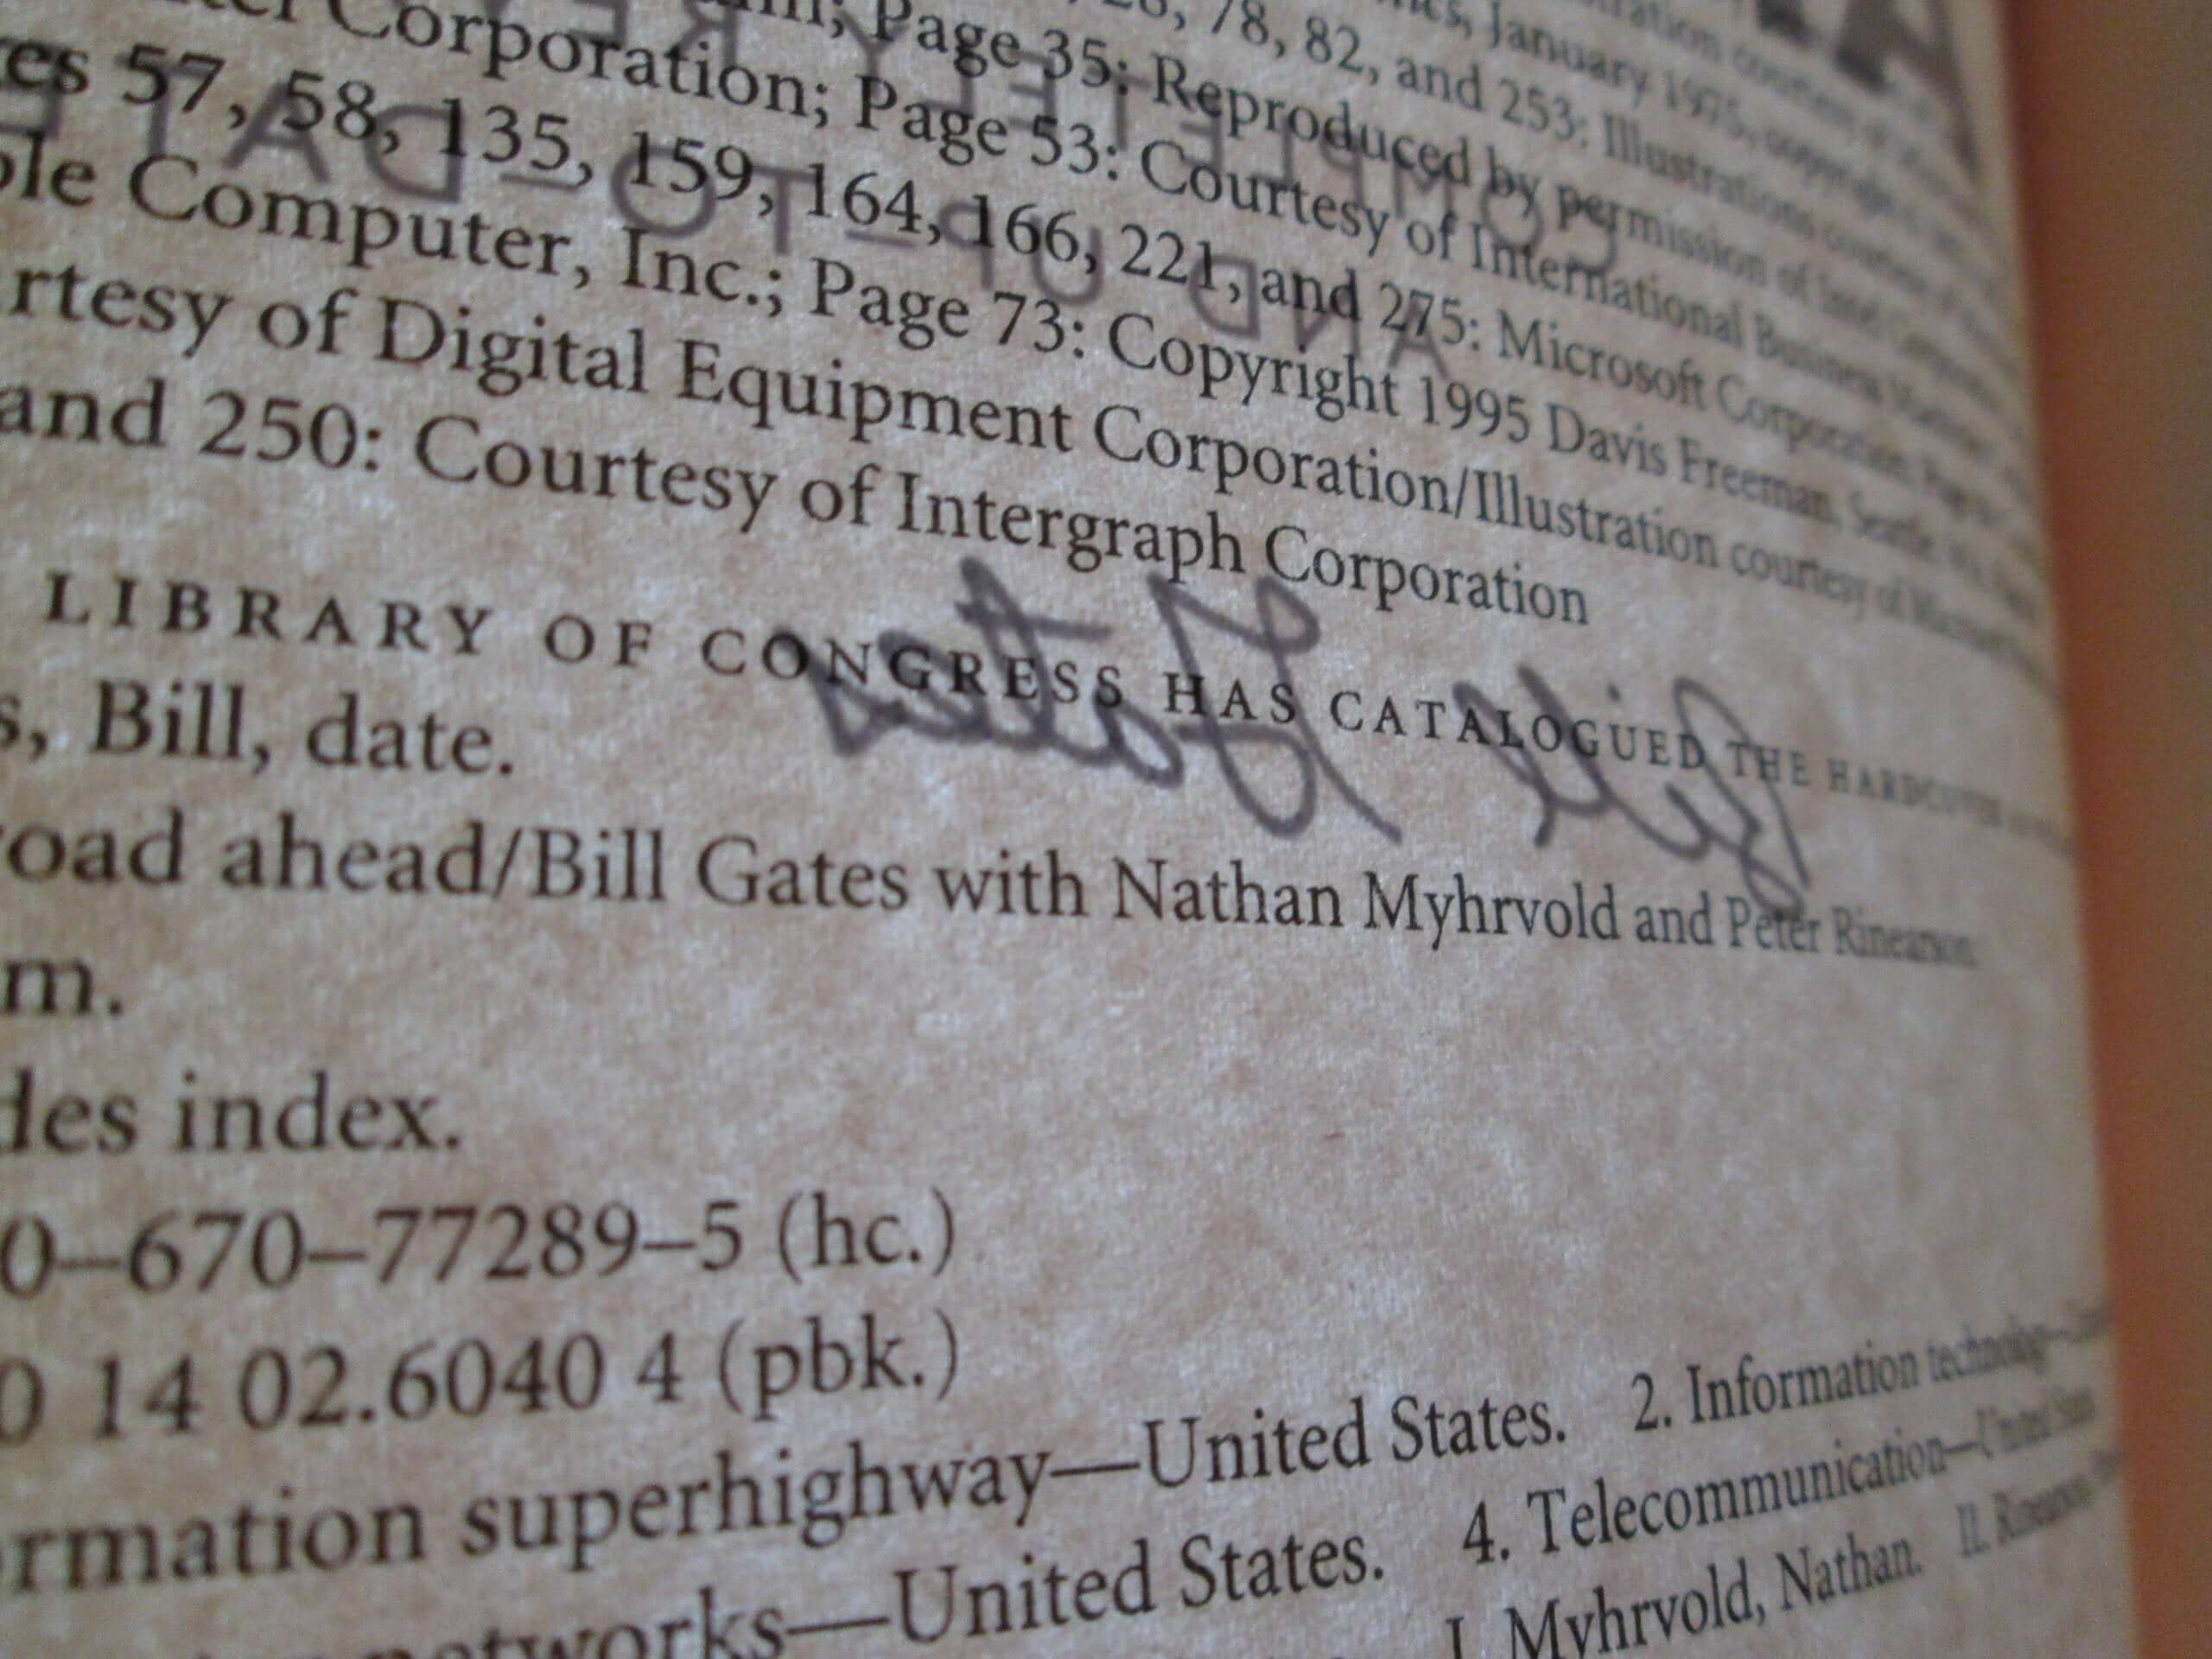 ration courtesy of
ics, January 1975, copyright
, 78, 82, and 253: Illustrations courtesy of
; Page 35: Reproduced by permission of Intel Corporation
Corporation; Page 53: Courtesy of International Business Machines
es 57, 58, 135, 159, 164, 166, 221, and 275: Microsoft Corporation; Page
ple Computer, Inc.; Page 73: Copyright 1995 Davis Freeman, Seattle
rtesy of Digital Equipment Corporation/Illustration courtesy of Microsoft
and 250: Courtesy of Intergraph Corporation
LIBRARY OF CONGRESS HAS CATALOGUED THE HARDCOVER
s, Bill, date.
road ahead/Bill Gates with Nathan Myhrvold and Peter Rinearson.
m.
des index.
0–670–77289–5 (hc.)
0 14 02.6040 4 (pbk.)
rmation superhighway—United States. 2. Information technology—
networks—United States. 4. Telecommunication—United States
I. Myhrvold, Nathan. II. Rinearson
COMPLETELY
AND UP-TO-DATE
Bill Gates